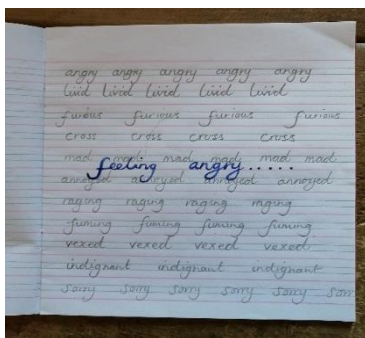 angry angry angry angry angry
livid livid livid livid livid
furious furious furious furious
cross cross cross cross
mad mad mad mad mad mad
feeling angry.....
annoyed annoyed annoyed annoyed
raging raging raging raging
fuming fuming fuming fuming
vexed vexed vexed vexed
indignant indignant indignant
sorry sorry sorry sorry sorry sorry